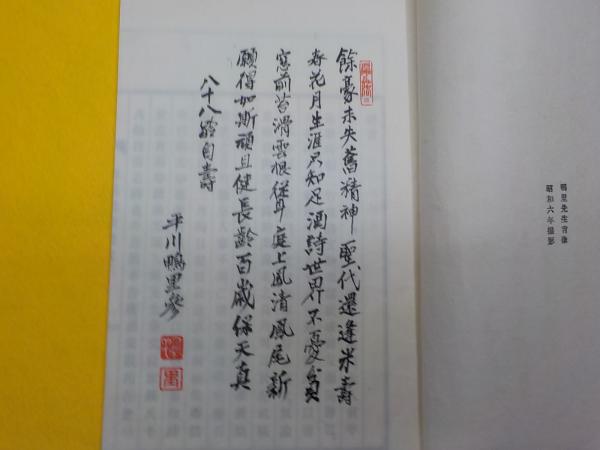 餘豪未失舊精神聖代還逢米壽
春花月生涯只知足酒詩世界不憂貧
窓前苔滑雲根従庭上風清鳳尾新
願得如斯頑且健長齢百歳保天真
八十八齢自壽
平川鴨里
鴨里先生肖像
昭和六年撮影